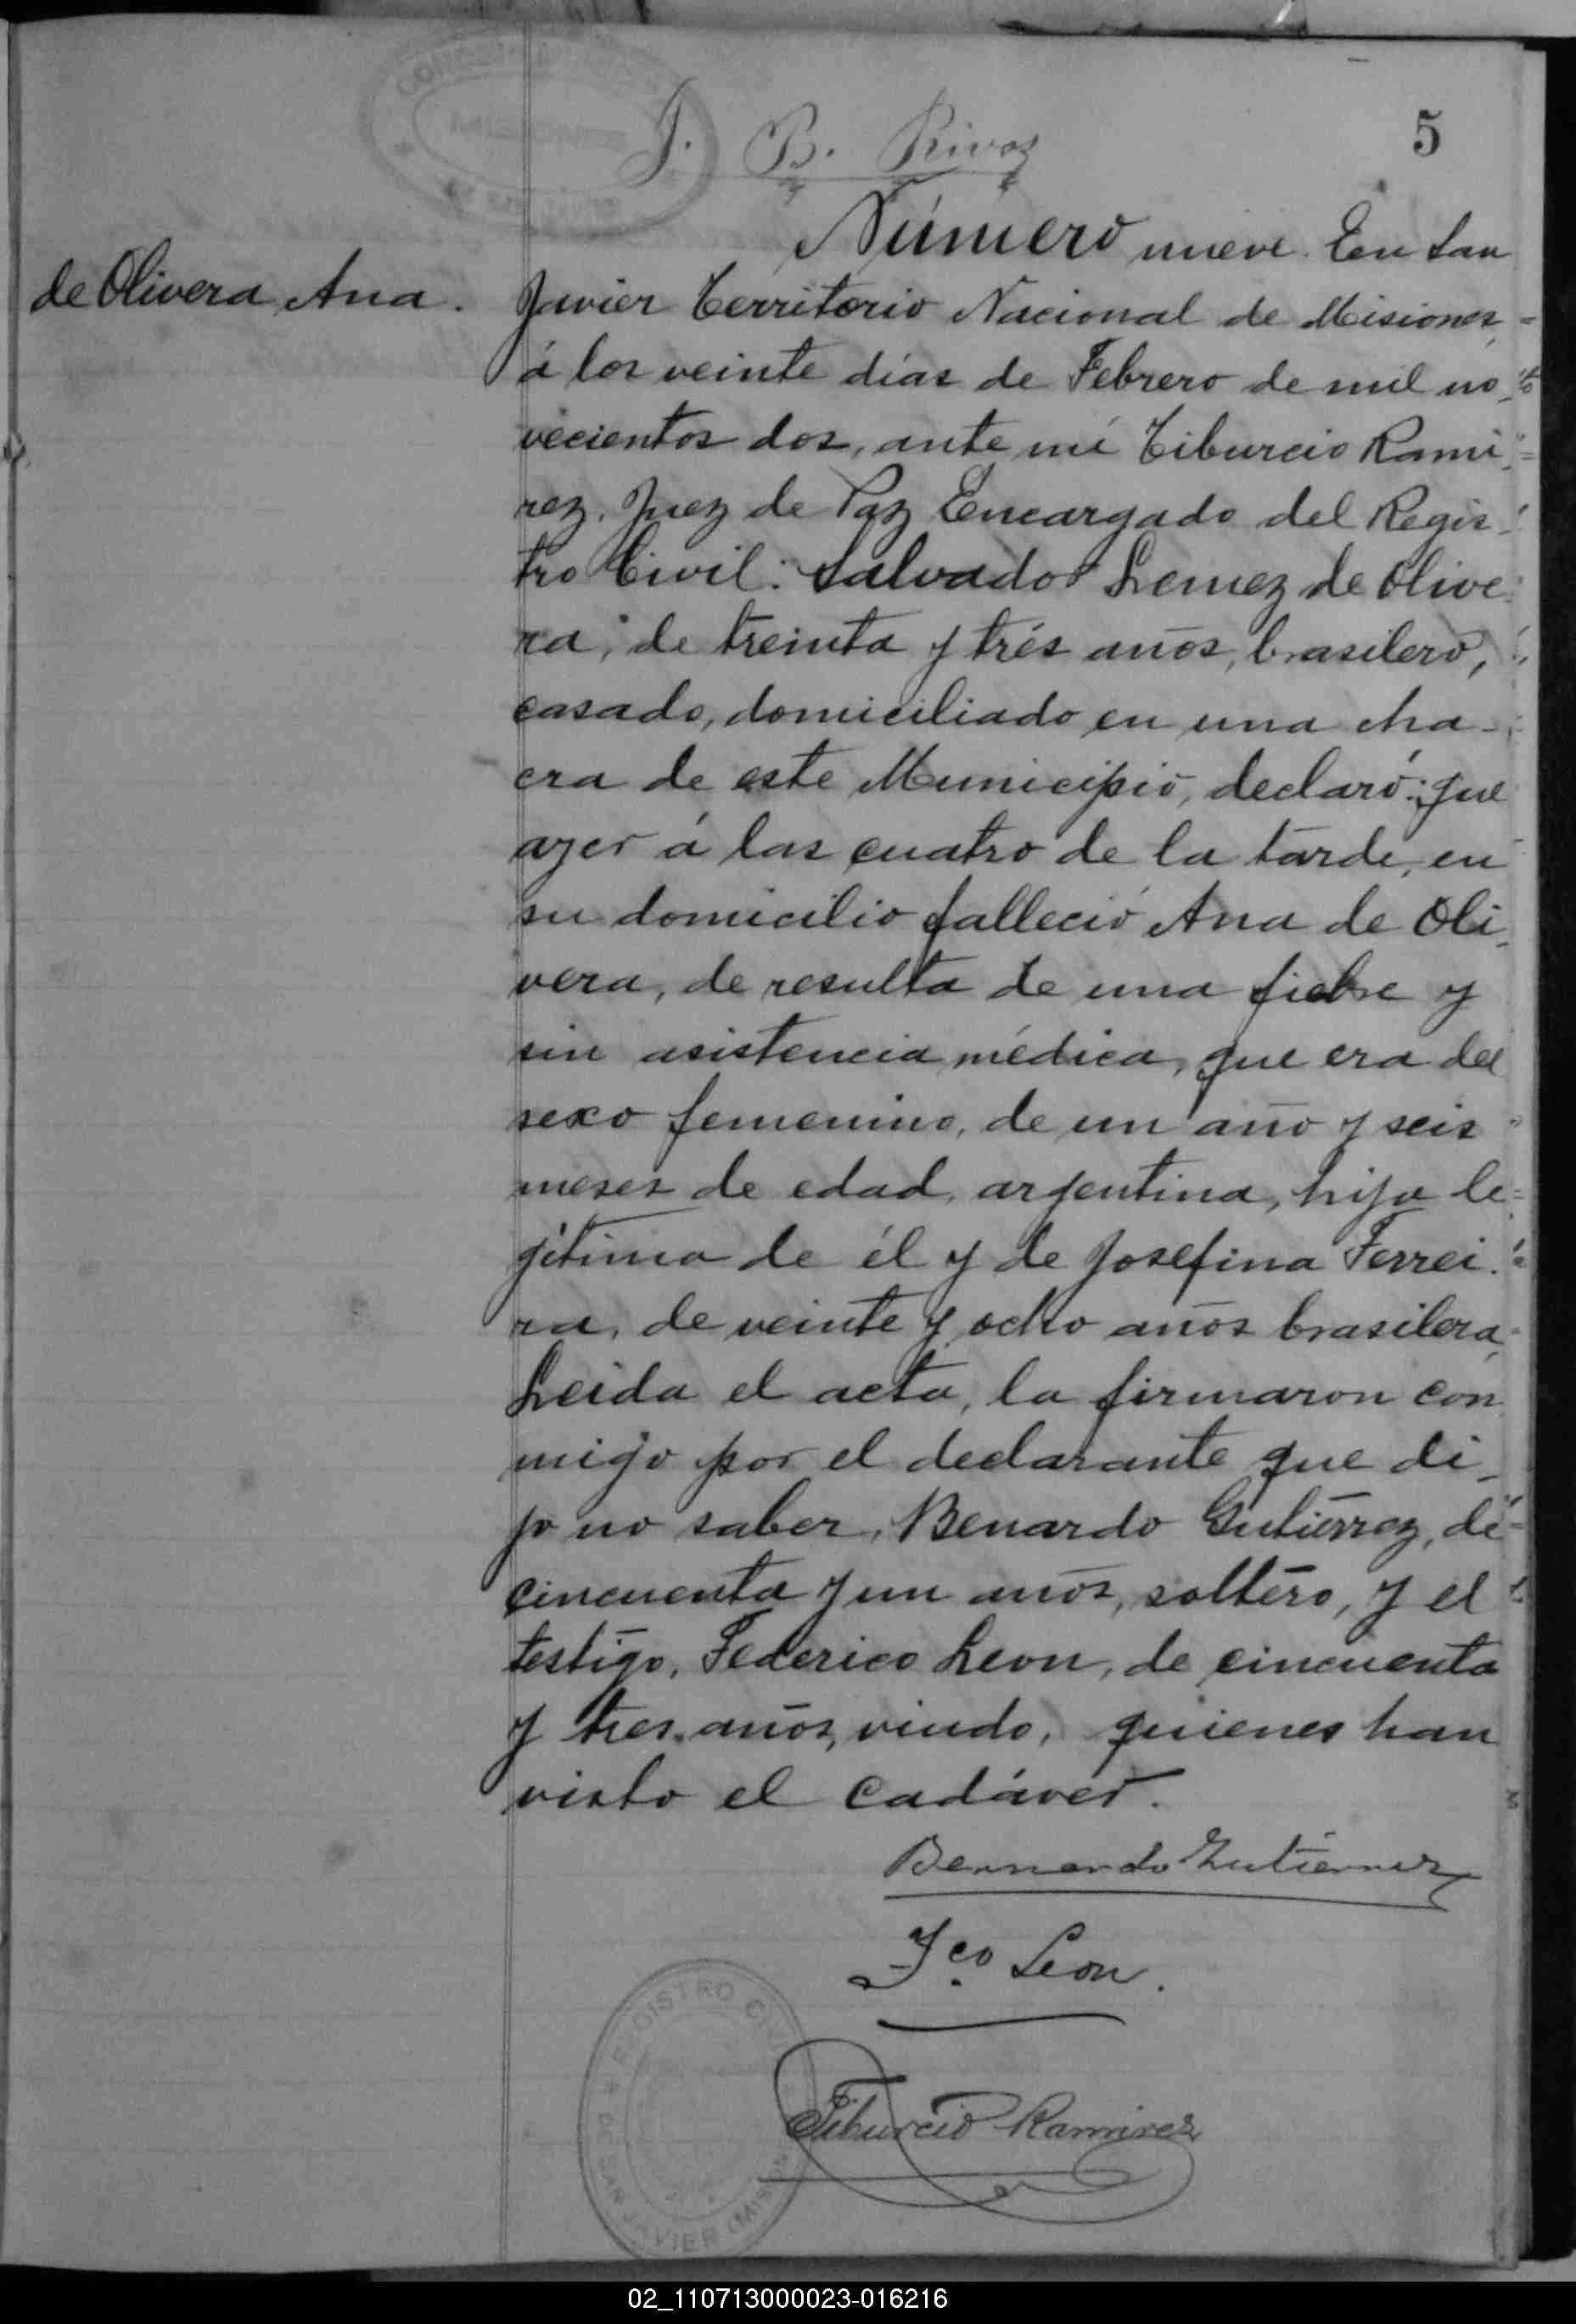 5
J. B. Rivas
de Olivera Ana.
Número nueve. En San
Javier Territorio Nacional de Misiones,
á los veinte días de Febrero de mil no
vecientos dos, ante mí Tiburcio Rami
rez, Juez de Paz Encargado del Regis
tro Civil: Salvador Lemez de Olive
ra, de treinta y trés años, brasilero,
casado, domiciliado en una cha-
cra de este Municipio, declaró: que
ayer á las cuatro de la tarde, en
su domicilio falleció Ana de Oli
vera, de resulta de una fiebre y
sin asistencia médica, que era del
sexo femenino, de un año y seis
meses de edad, argentina, hija le
gitima de él y de Josefina Ferrei
ra, de veinte y ocho años brasilera,
Leida el acta, la firmaron con
migo por el declarante que di_
jo no saber, Benardo Gutiérrez, de
cincuenta y un años, soltero, y el
testigo, Federico Leon, de cincuenta
y tres años, viudo, quienes han
visto el cadáver.
Bernardo Gutierrez
Fco Leon.
Tiburcio Ramirez
REGISTRO CIVIL
DE SAN JAVIER (MISIONES)
02_110713000023-016216